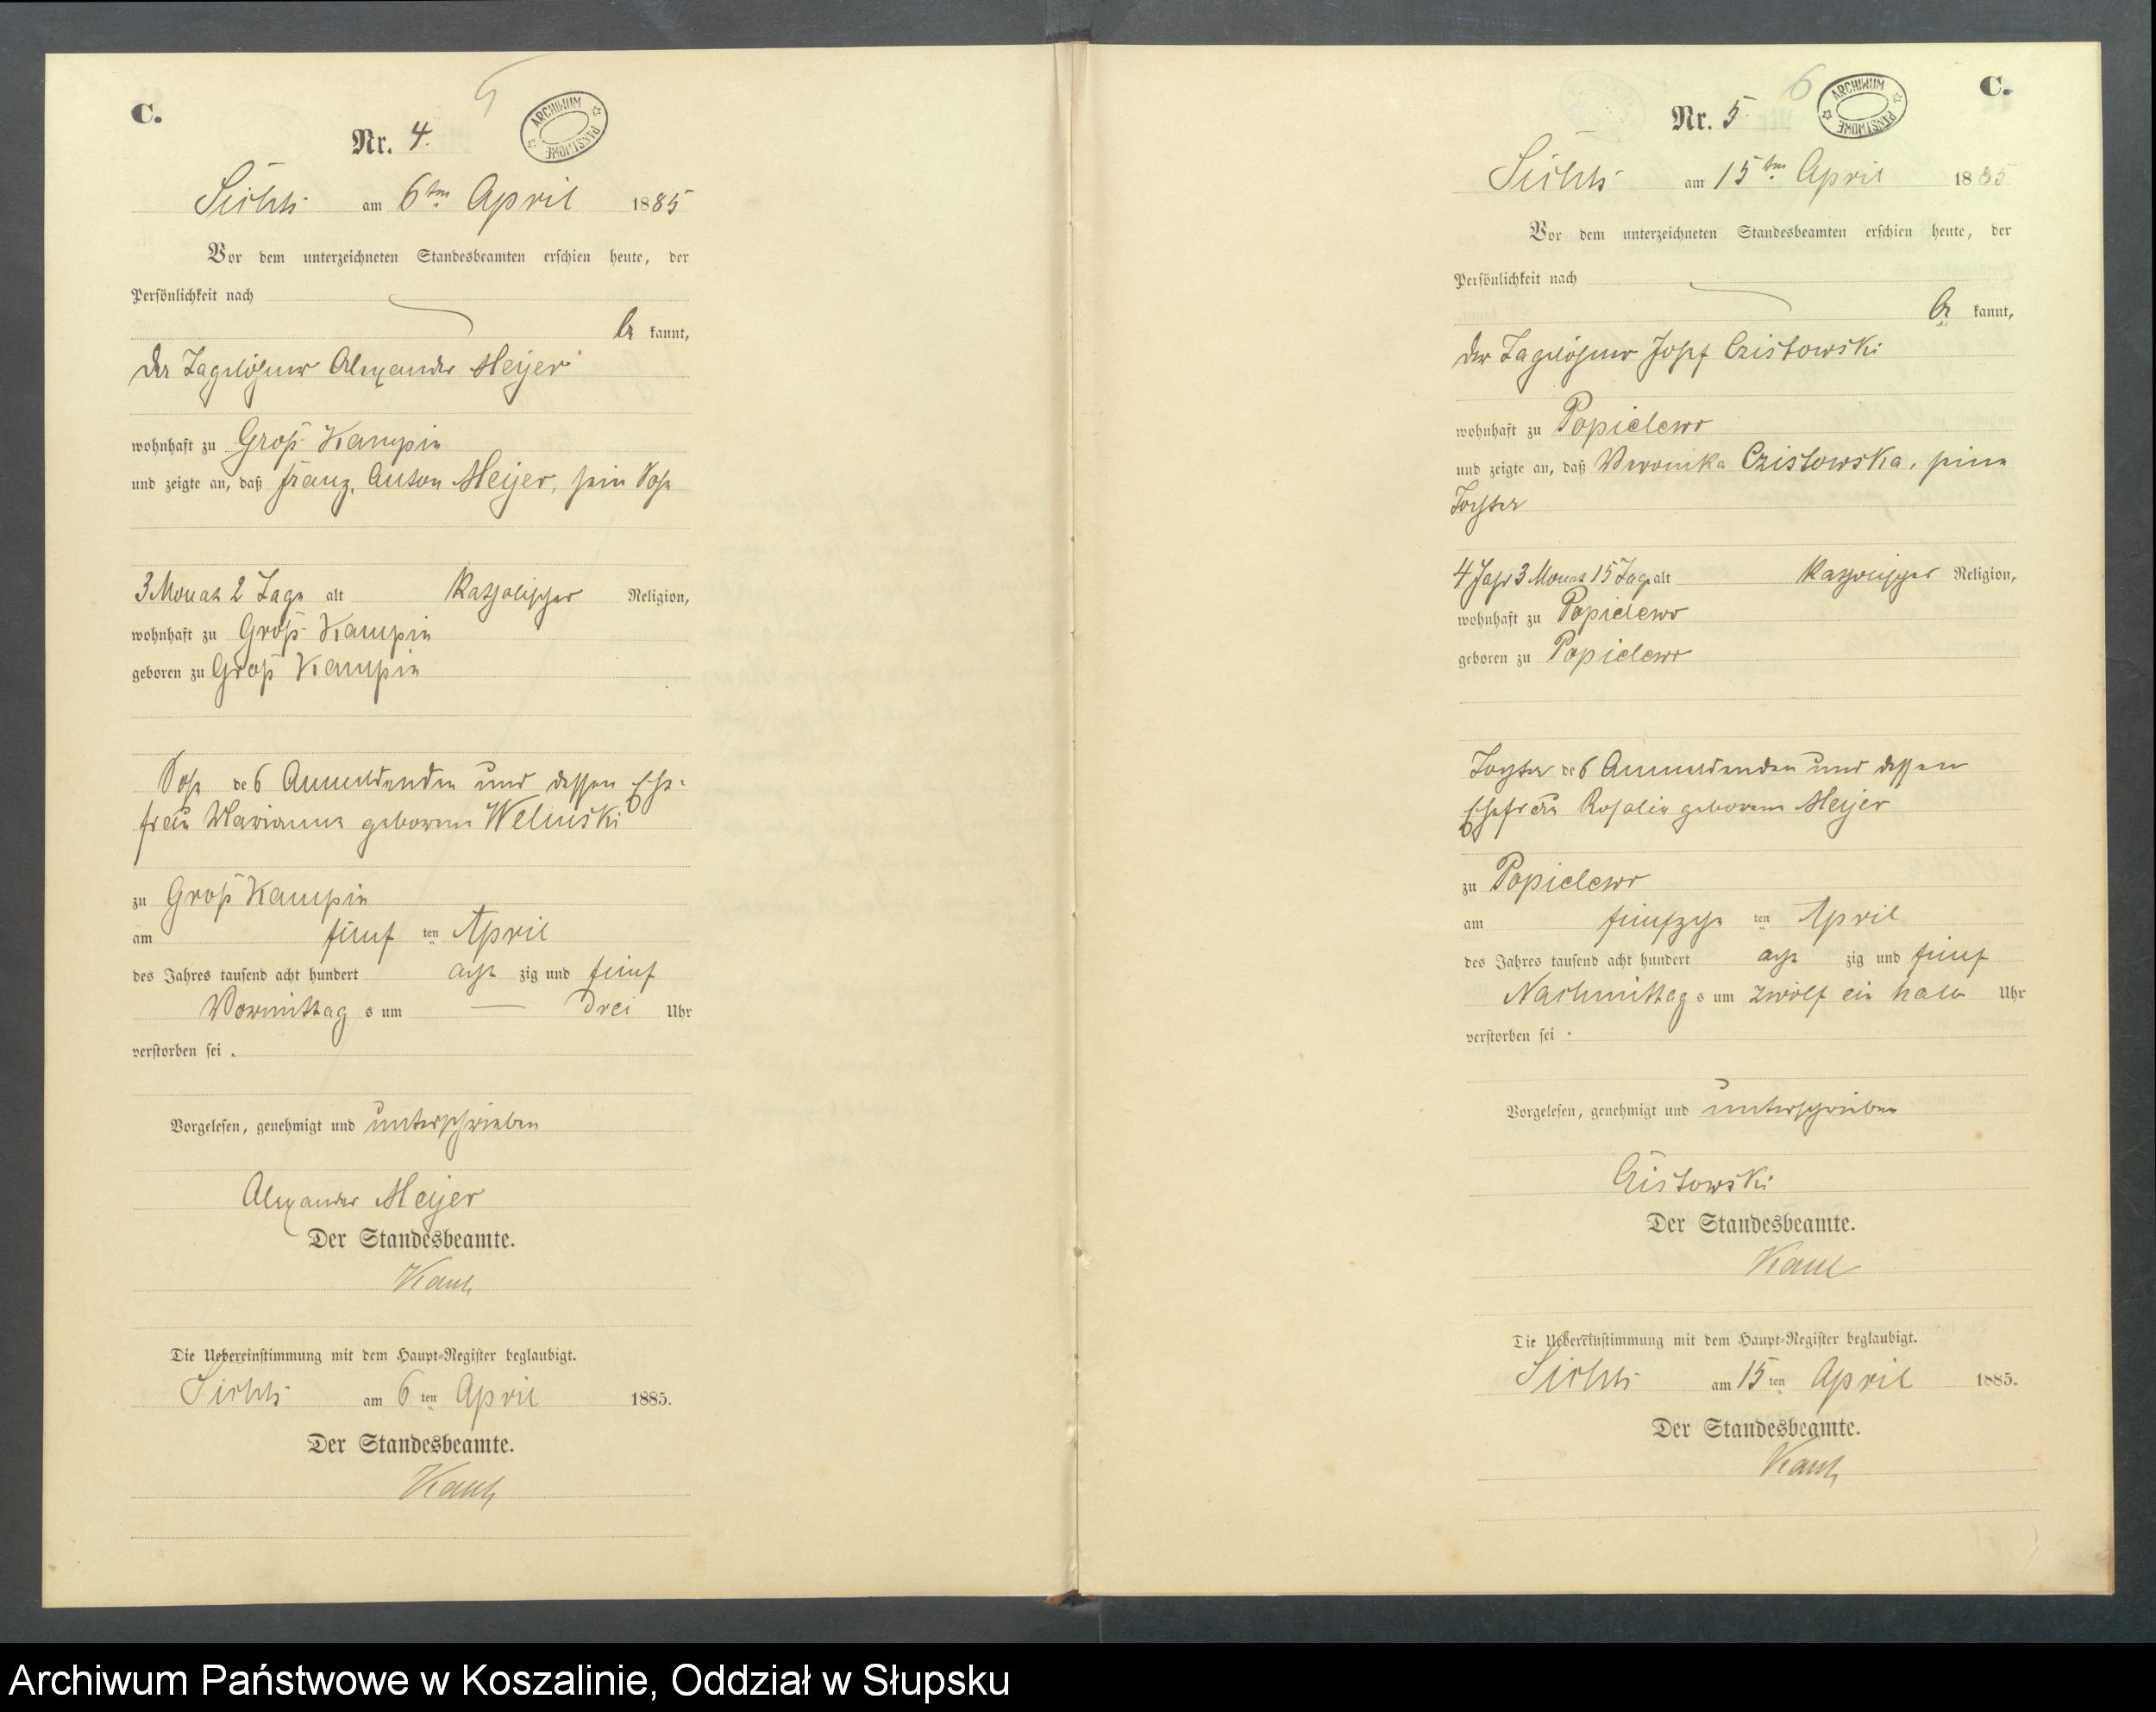 5
C.
Nr. 4.
ARCHIWUM PAŃSTWOWE
am 6ten April 1885
Vor dem unterzeichneten Standesbeamten erschien heute, der
Persönlichkeit nach
be kannt,
der Tagelöhner Alexander Meijer
wohnhaft zu Groß Kampin
und zeigte an, daß Franz, Anton Meijer, sein Sohn
3 Monat 2 Tage alt katholischer Religion,
wohnhaft zu Groß Kampin
geboren zu Groß Kampin
Sohn des Anmeldenden und dessen Ehe-
frau Marianna geborene Welinski
zu Groß Kampin
am fünf ten April
des Jahres tausend acht hundert acht zig und fünf
Vormittag s um — drei Uhr
verstorben sei.
Vorgelesen, genehmigt und unterschrieben
Alexander Meijer
Der Standesbeamte.
Die Uebereinstimmung mit dem Haupt-Register beglaubigt.
am 6 ten April 1885.
Der Standesbeamte.
6
C.
Nr. 5.
ARCHIWUM PAŃSTWOWE
am 15ten April 1885
Vor dem unterzeichneten Standesbeamten erschien heute, der
Persönlichkeit nach
be kannt,
der Tagelöhner Josef Czistowski
wohnhaft zu Popielewo
und zeigte an, daß Weronika Czistowska, seine
Tochter
4 Jahr 3 Monat 15 Tage alt katholischer Religion,
wohnhaft zu Popielewo
geboren zu Popielewo
Tochter des Anmeldenden und dessen
Ehefrau Rosalie geborene Meijer
zu Popielewo
am fünfzehn ten April
des Jahres tausend acht hundert acht zig und fünf
Nachmittag s um zwölf ein halb Uhr
verstorben sei.
Vorgelesen, genehmigt und unterschrieben
Czistowski
Der Standesbeamte.
Die Uebereinstimmung mit dem Haupt-Register beglaubigt.
am 15 ten April 1885.
Der Standesbeamte.
Archiwum Państwowe w Koszalinie, Oddział w Słupsku